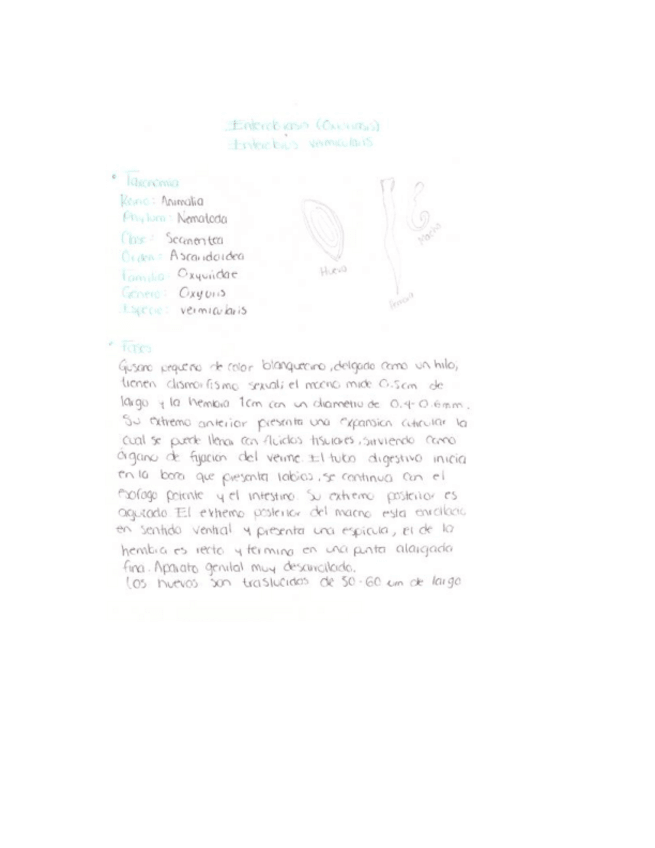 Enterobiasis (Oxiuriasis)
Enterobius vermicularis
Taxonomia
Reino: Animalia
Phylum: Nematoda
Clase: Secernentea
Orden: Ascaridoidea
Familia: Oxyuridae
Género: Oxyuris
Especie: vermicularis
Huevo
Hembra
Macho
Fases
Gusano pequeño de color blanquecino, delgado como un hilo,
tienen dismorfismo sexual; el macho mide 0.5cm de
largo y la hembra 1cm con un diametro de 0.4-0.6mm.
Su extremo anterior presenta una expansion cuticular la
cual se puede llenar con fluidos tisulares, sirviendo como
órgano de fijación del verme. El tubo digestivo inicia
en la boca que presenta labios, se continua con el
esofago potente y el intestino. Su extremo posterior es
aguzado. El extremo posterior del macho esta enrollado
en sentido ventral y presenta una espicula, el de la
hembra es recto y termina en una punta alargada
fina. Aparato genital muy desarrollado.
Los huevos son traslucidos de 50-60 um de largo